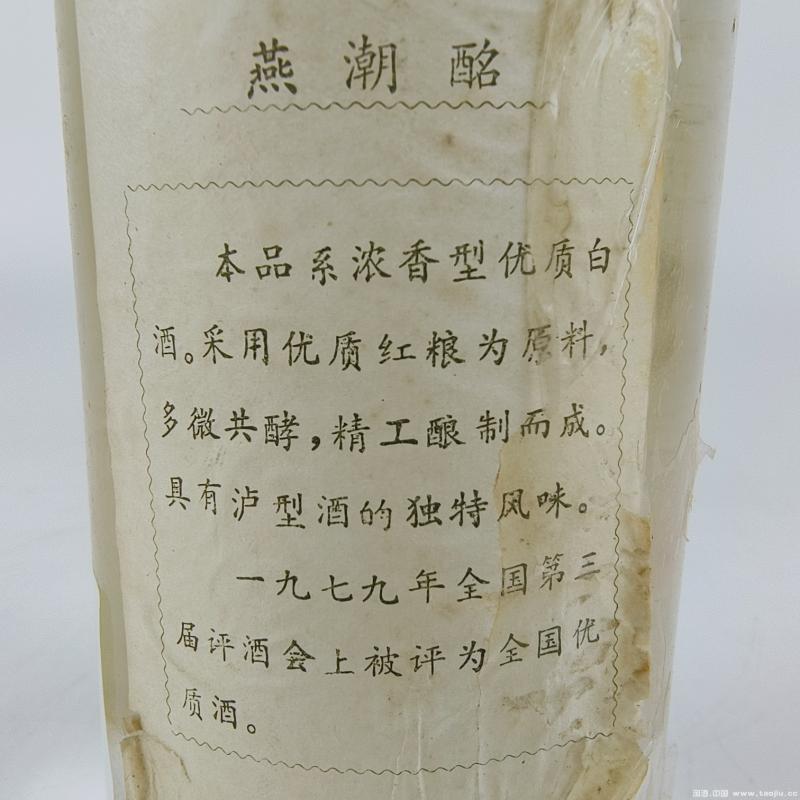 燕潮酩
本品系浓香型优质白
酒。采用优质红粮为原料,
多微共酵,精工酿制而成。
具有泸型酒的独特风味。
一九七九年全国第三
届评酒会上被评为全国优
质酒。
国酒.中国 www.taojiu.cc